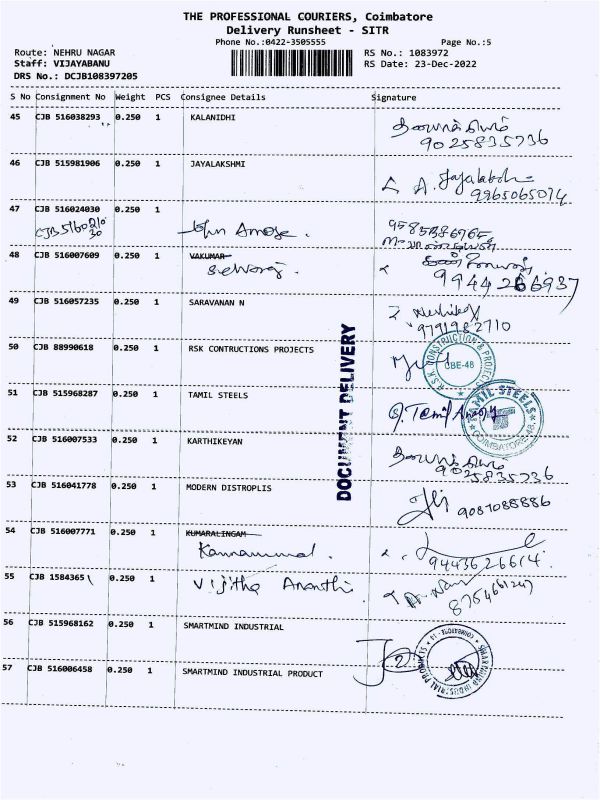 THE PROFESSIONAL COURIERS, Coimbatore
Delivery Runsheet - SITR
Phone No.:0422-3505555 Page No.:5
Route: NEHRU NAGAR RS No.: 1083972
Staff: VIJAYABANU RS Date: 23-Dec-2022
DRS No.: DCJB108397205
S No Consignment No Weight PCS Consignee Details Signature
45 CJB 516038293 0.250 1 KALANIDHI
9025835736
46 CJB 515981906 0.250 1 JAYALAKSHMI A. Jayalakshmi
9965065074
47 CJB 516024030 0.250 1
John Amose.
48 CJB 516007609 0.250 1 VAKUMAR
Selvaraj
9944266937
49 CJB 516057235 0.250 1 SARAVANAN N
9791982710
50 CJB 88990618 0.250 1 RSK CONTRUCTIONS PROJECTS
R.S.K. CONSTRUCTION & PROJECTS CBE-48
DOCUMENT DELIVERY
51 CJB 515968287 0.250 1 TAMIL STEELS
TAMIL STEELS COIMBATORE-48
52 CJB 516007533 0.250 1 KARTHIKEYAN
9025835736
53 CJB 516041778 0.250 1 MODERN DISTROPLIS
9087088886
54 CJB 516007771 0.250 1 KUMARALINGAM
Kannammal.
9443626614.
55 CJB 1584365 0.250 1 Vijitha Ananthi
8754661247
56 CJB 515968162 0.250 1 SMARTMIND INDUSTRIAL
57 CJB 516006458 0.250 1 SMARTMIND INDUSTRIAL PRODUCT